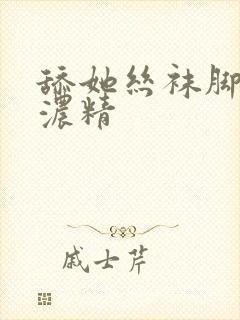 舔她丝袜脚
浓精
戚士芹